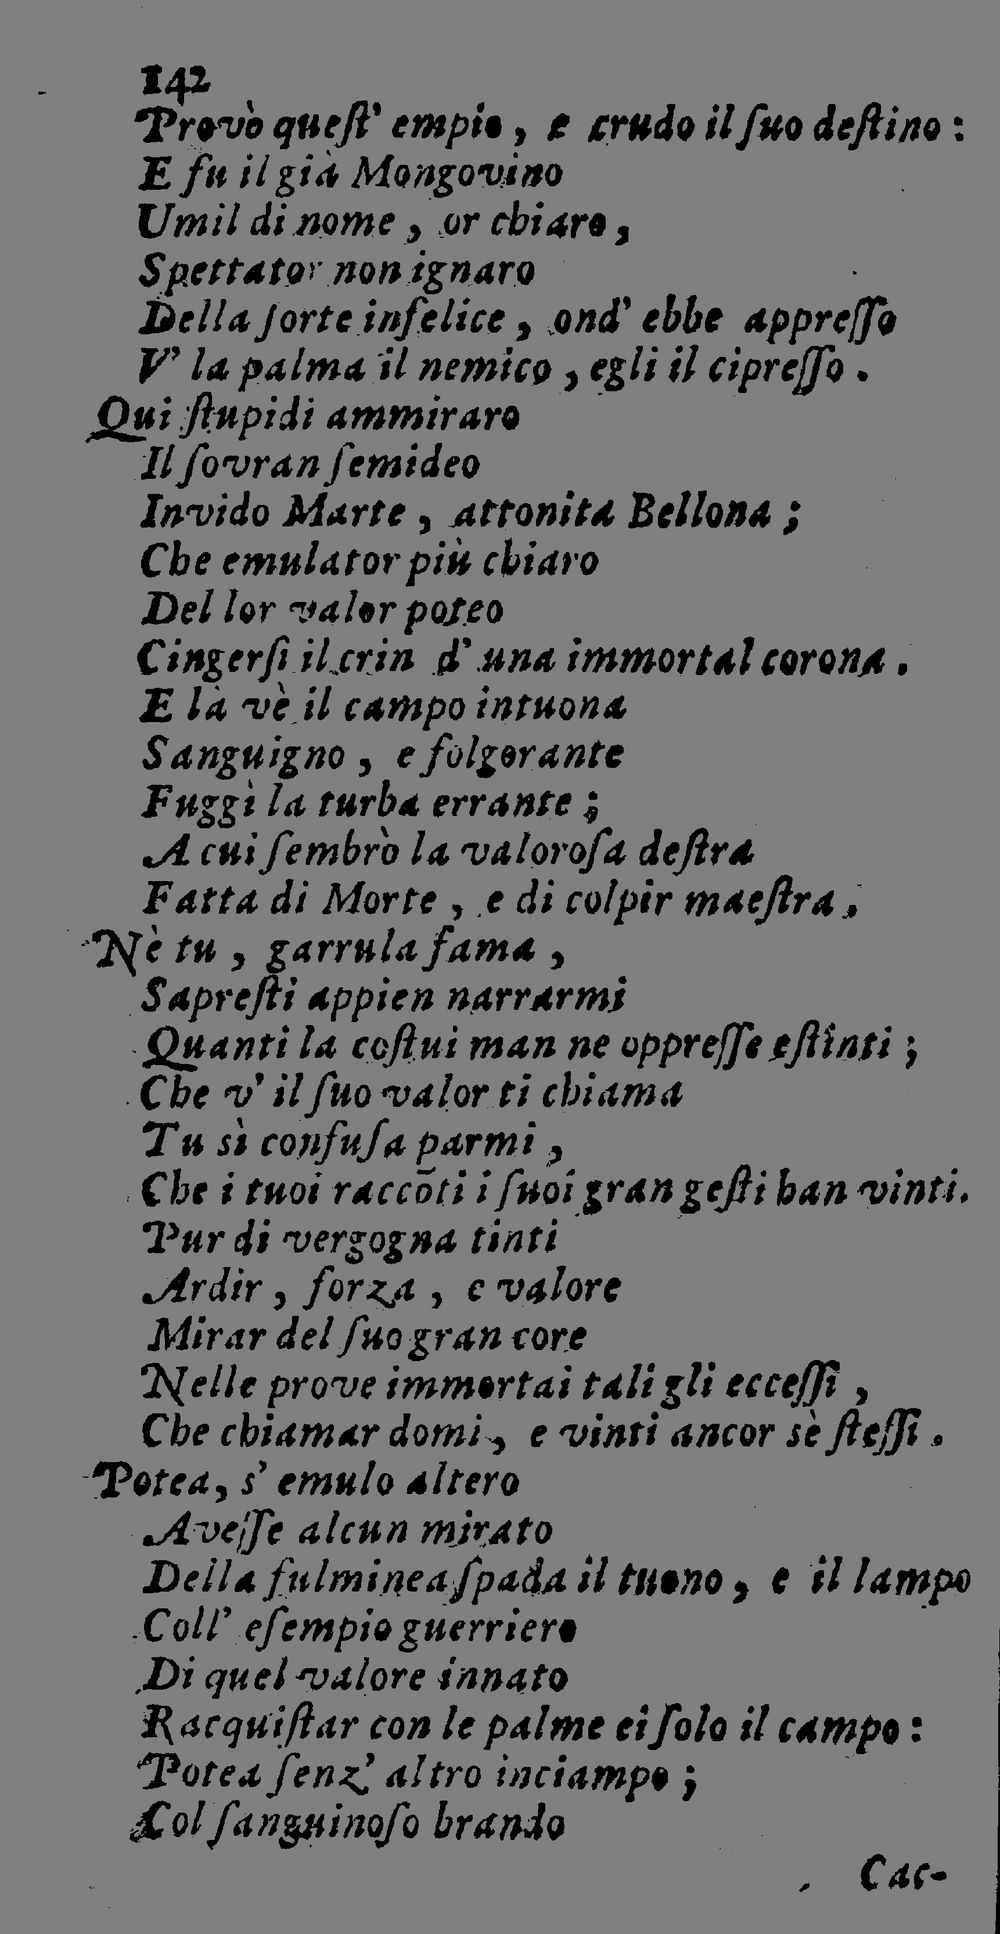 142
Provò queſt' empio, e crudo il ſuo deſtino:
E fu il già Mongovino
Umil di nome, or chiaro,
Spettator non ignaro
Della ſorte infelice, ond' ebbe appreſſo
V' la palma il nemico, egli il cipreſſo.
Qui ſtupidi ammiraro
Il ſovran ſemideo
Invido Marte, attonita Bellona;
Che emulator più chiaro
Del lor valor poteo
Cingerſi il crin d' una immortal corona.
E là vè il campo intuona
Sanguigno, e folgorante
Fuggì la turba errante;
A cui ſembrò la valoroſa deſtra
Fatta di Morte, e di colpir maeſtra.
Nè tu, garrula fama,
Sapreſti appien narrarmi
Quanti la coſtui man ne oppreſſe eſtinti;
Che v' il ſuo valor ti chiama
Tu sì confuſa parmi,
Che i tuoi raccōti i ſuoi gran geſti han vinti.
Pur di vergogna tinti
Ardir, forza, e valore
Mirar del ſuo gran core
Nelle prove immortai tali gli ecceſſi,
Che chiamar domi, e vinti ancor sè ſteſſi.
Potea, s' emulo altero
Aveſſe alcun mirato
Della fulminea ſpada il tuono, e il lampo
Coll' eſempio guerriero
Di quel valore innato
Racquiſtar con le palme ei ſolo il campo:
Potea ſenz' altro inciampo;
Col ſanguinoſo brando
Cac-